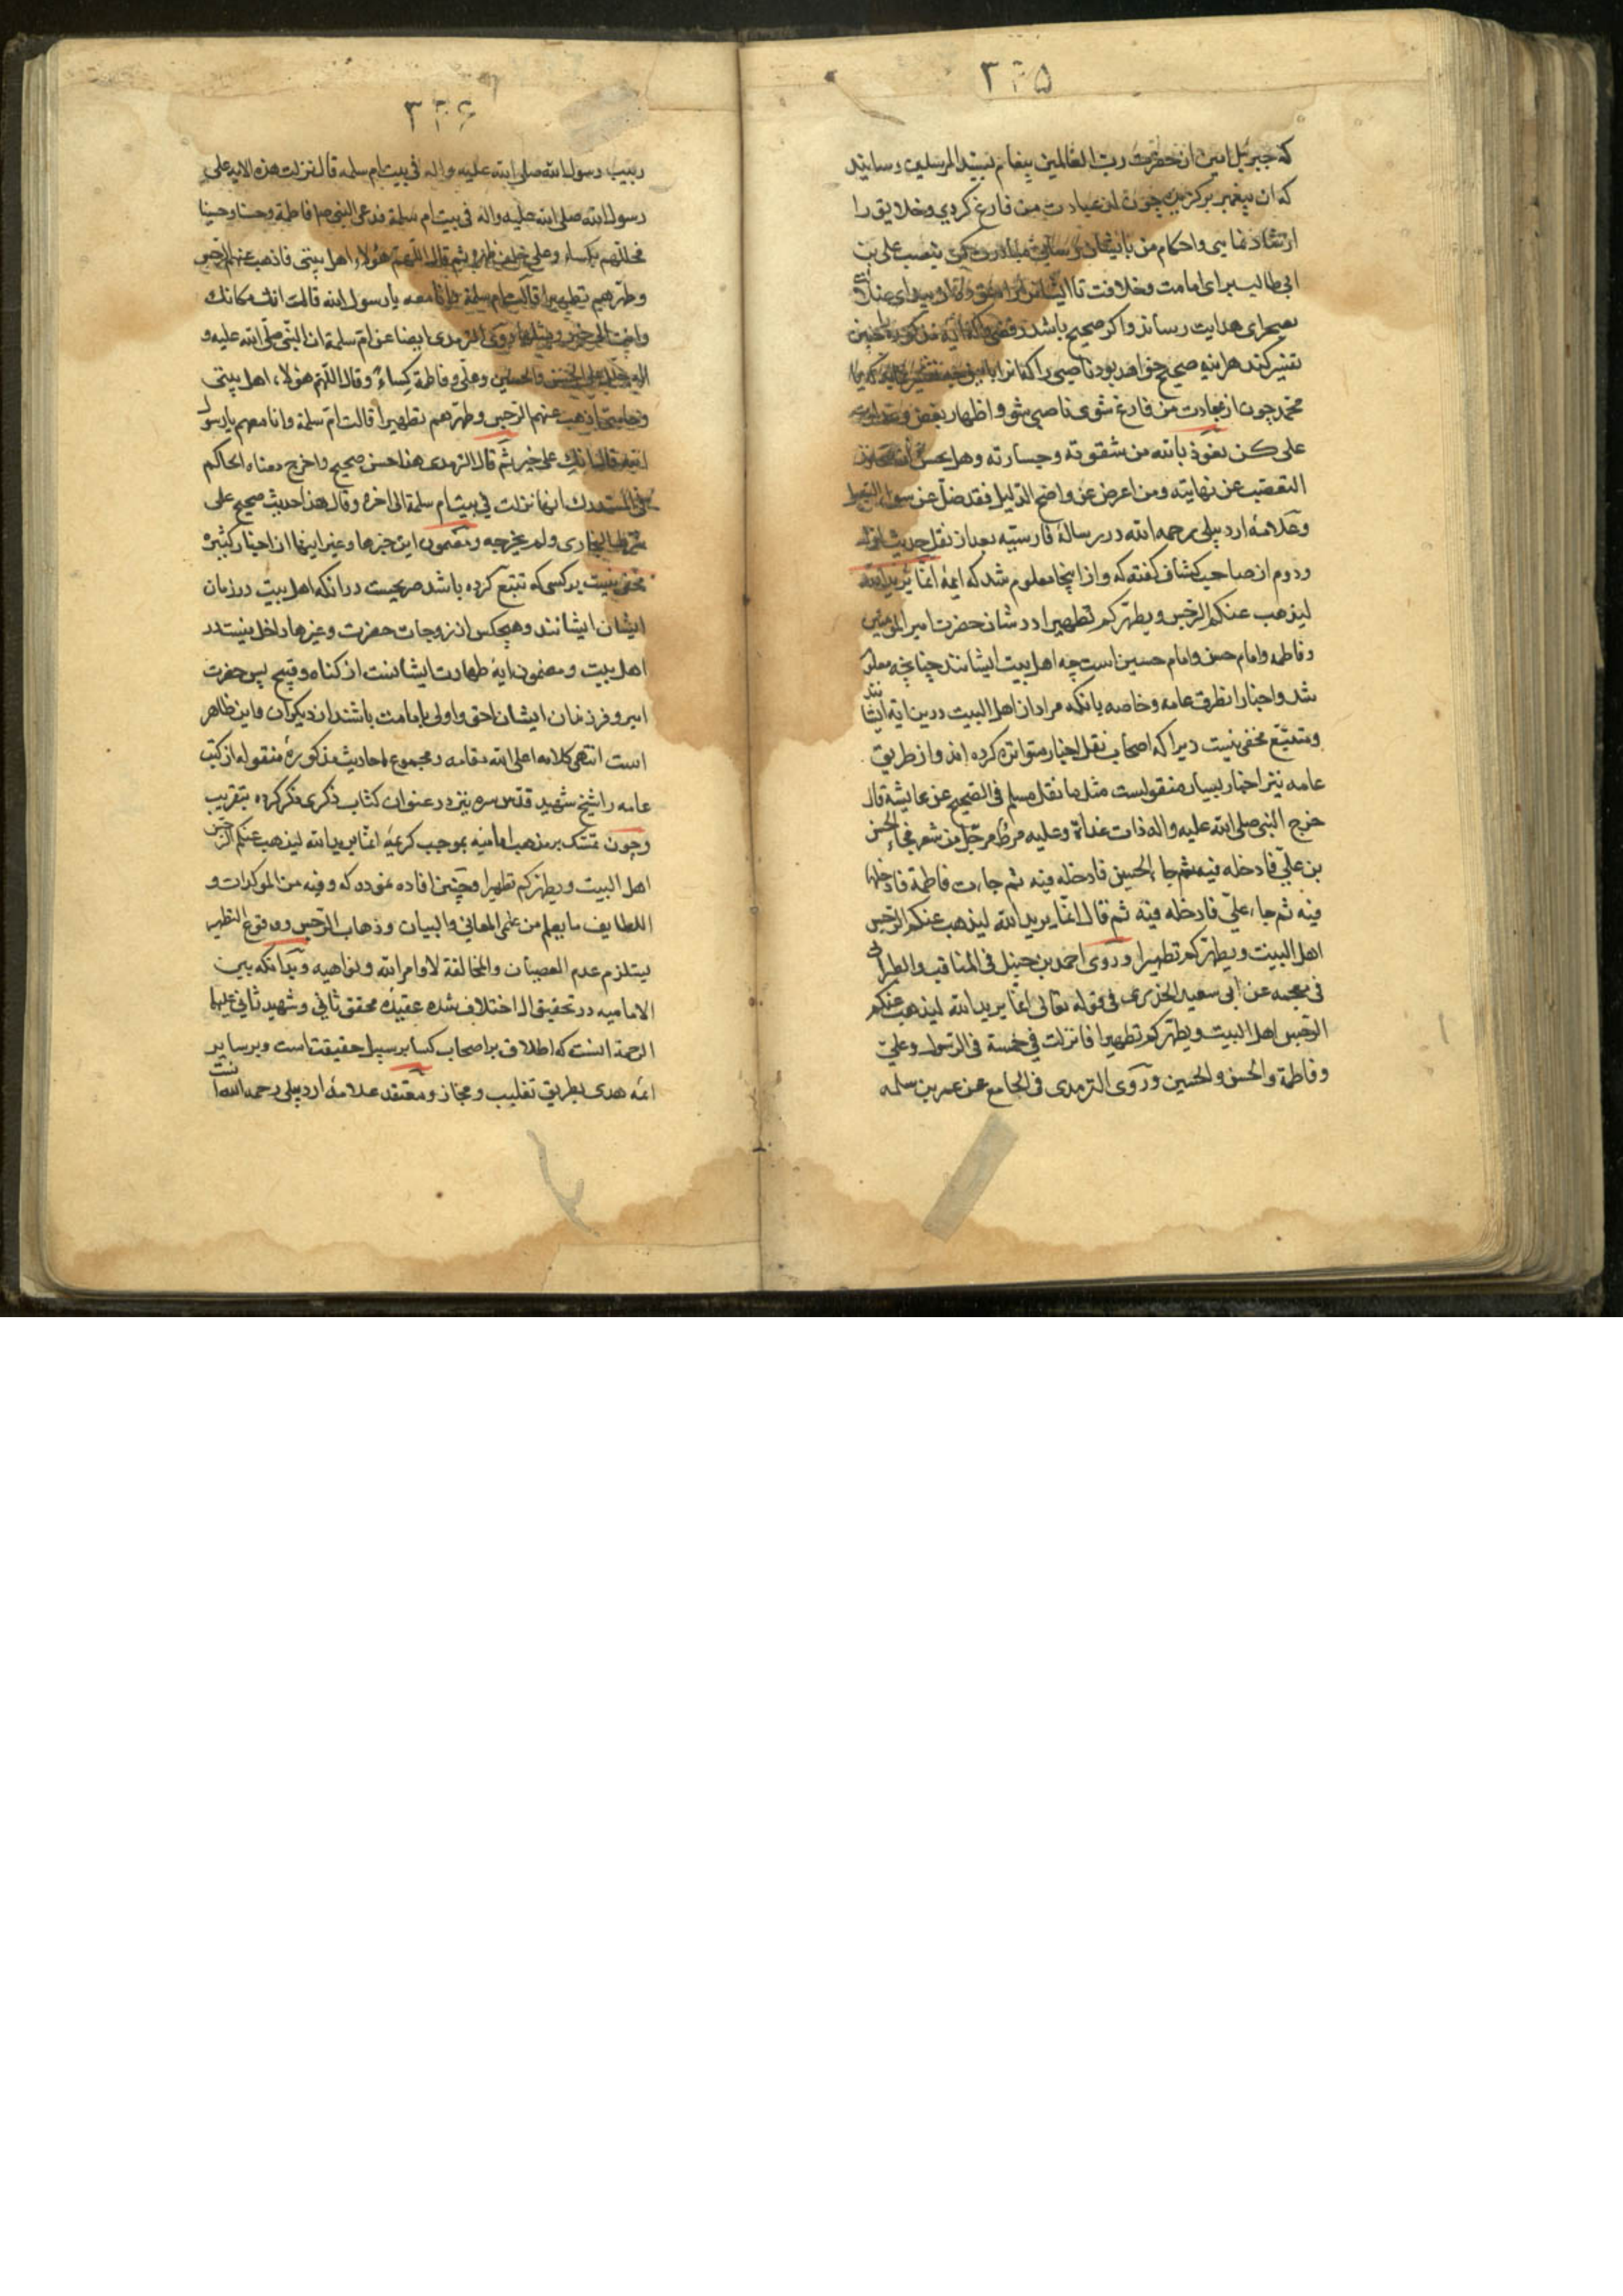 ۳۲۵
که جبرئیل امین از حضرت رب العالمین پیغام بسید المرسلین رسانید
که ان پیغمبر برکزیده چون از عبادت من فارغ کردی وخلایق را
ارشاد نمایی واحکام من بایشان رسانی مبادرت کن بنصب علی بن
ابی طالب برای امامت وخلافت تا ایشان را
بصحرای هدایت رساند واکر صحیح باشد
تفسیر کنند هراینه صحیح خواهد بود ناصبی را که
محمد چون از عبادت من فارغ شوی ناصبی شو واظهار بغض وعداوت
علی کن نعوذ بالله من شقوته وجسارته وهل یحسن
التعصب عن نهایته ومن اعرض عن واضح الدلیل فقد ضل عن سواء السبیل
وعلامهٔ اردبیلی رحمه الله در رسالهٔ فارسیه بعد از نقل حدیث اول
ودوم از صاحب کشاف کفته که واز اینجا معلوم شد که ایهٔ انما یرید الله
لیذهب عنکم الرجس ویطهرکم تطهیرا در شان حضرت امیر المؤمنین
وفاطمه وامام حسن وامام حسین است چه اهل بیت ایشانند چنانچه معلوم
شد واخبار از طرق عامه وخاصه بانکه مراد از اهل البیت درین ایه ایشانند
ومتتبع مخفی نیست زیرا که اصحاب نقل اخبار متواتره کرده اند واز طریق
عامه نیز اخبار بسیار منقولست مثل ما نقل مسلم فی الصحیح عن عایشه قال
خرج النبی صلی الله علیه واله ذات غداة وعلیه مرط مرجل من شعر فجاء الحسن
بن علی فادخله فیه ثم جاء الحسین فادخله فیه ثم جاءت فاطمة فادخلها
فیه ثم جاء علی فادخله فیه ثم قال انما یرید الله لیذهب عنکم الرجس
اهل البیت ویطهرکم تطهیرا وروی احمد بن حنبل فی المناقب والطبرانی
فی معجمه عن ابی سعید الخدری فی قوله تعالی انما یرید الله لیذهب عنکم
الرجس اهل البیت ویطهرکم تطهیرا قانزلت فی خمسة فی الرسول وعلی
وفاطمة والحسن والحسین وروی الترمدی فی الجامع عن عمر بن سلمه
۳۲۶
ربیب رسول الله صلی الله علیه واله فی بیت ام سلمه قال نزلت هذه الایه علی
رسول الله صلی الله علیه واله فی بیت ام سلمة فدعی النبی ص فاطمة وحسنا وحسینا
فجللهم بکساء وعلی خلف ظهره ثم قال اللهم هؤلاء اهل بیتی فاذهب عنهم الرجس
وطهرهم تطهیرا قالت ام سلمة وانا معه یا رسول الله قالت انک مکانک
وانت الی خیر وبمثلها روی الترمدی ایضا عن ام سلمة ان النبی صلی الله علیه و
اله جلل علی الحسن والحسین وعلی وفاطمة کساءً وقال اللهم هؤلاء اهل بیتی
وحامتی اذهب عنهم الرجس وطهرهم تطهیرا قالت ام سلمة وانا معهم یا رسول
الله قال انک علی خیر ثم قال الترمدی هذا حسن صحیح واخرج معناه الحاکم
فی المستدرک انها نزلت فی بیت ام سلمة الی اخره وقال هذا حدیث صحیح علی
شرط البخاری ولم یخرجه ومضمون این خبرها وغیر اینها از اخبار کثیره
مخفی نیست بر کسی که تتبع کرده باشد صریحست در انکه اهل بیت در زمان
ایشان ایشانند وهیچکس از زوجات حضرت وغیرها داخل نیستند در
اهل بیت ومضمون ایه طهارت ایشانست از کناه وقبیح پس حضرت
امیر وفرزندان ایشان احق واولی بامامت باشند از دیکران واین ظاهر
است انتهی کلامه اعلی الله مقامه ومجموع احادیث مذکورهٔ منقوله از کتب
عامه را شیخ شهید قدس سره نیز در عنوان کتاب ذکری ذکر کرده بتقریب
وجوب تمسک بمذهب امامیه بموجب کریمهٔ انما یرید الله لیذهب عنکم الرجس
اهل البیت ویطهرکم تطهیرا وچنین افاده نموده که وفیه من الموکدات و
اللطایف ما یعلم من علمی المعانی والبیان وذهاب الرجس ووقوع التطهیر
یستلزم عدم العصیان والمخالفة لاوامر الله ونواهیه وبدانکه بین
الامامیه در تحقیق ال اختلاف شده عقیدهٔ محقق ثانی وشهید ثانی علیهما
الرحمة انست که اطلاق بر اصحاب کسا بر سبیل حقیقت است وبر سایر
ائمه هدی بطریق تغلیب ومجاز ومعتقد علامهٔ اردبیلی رحمه الله انست